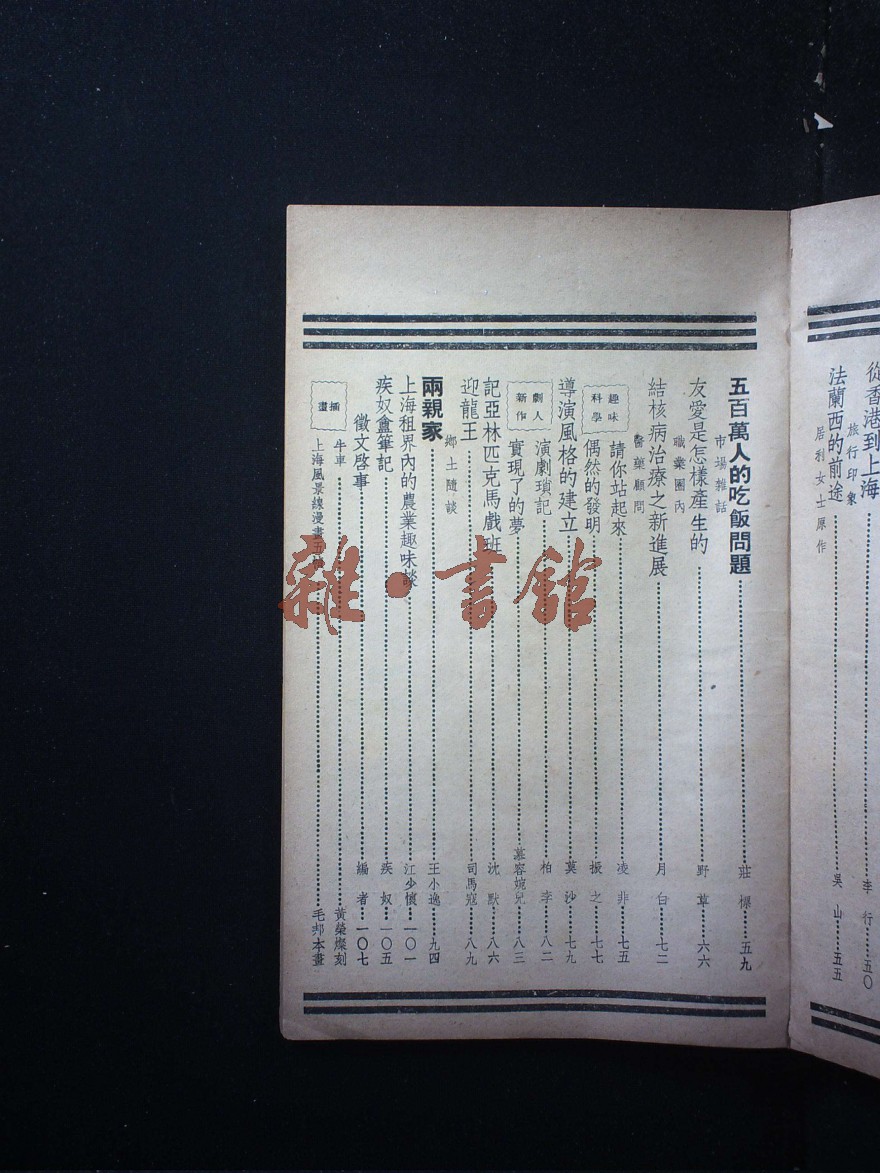 從香港到上海……李行……五〇
旅行印象
法蘭西的前途……吳山……五五
居利女士原作
五百萬人的吃飯問題……莊㮣……五九
市場雜話
友愛是怎樣產生的……野草……六六
職業圈內
結核病治療之新進展……月白……七二
醫藥顧問
趣味科學
請你站起來……凌非……七五
偶然的發明……振之……七七
導演風格的建立……莫沙……七九
劇人新作
演劇瑣記……柏李……八二
實現了的夢……慕容婉兒……八三
記亞林匹克馬戲班……沈默……八六
迎龍王……司馬寇……八九
鄉土隨談
兩親家……王小逸……九四
上海租界內的農業趣味談……江少懷……一〇一
疾奴盦筆記……疾奴……一〇五
徵文啓事……編者……一〇七
插畫
牛車……黃榮燦刻
上海風景線漫畫五……毛邦本畫
雜·書館